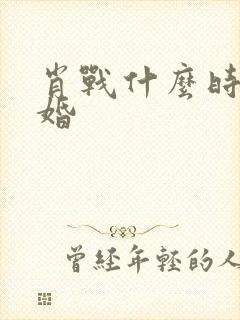 肖戰什麼時
婚
曾經年輕的人